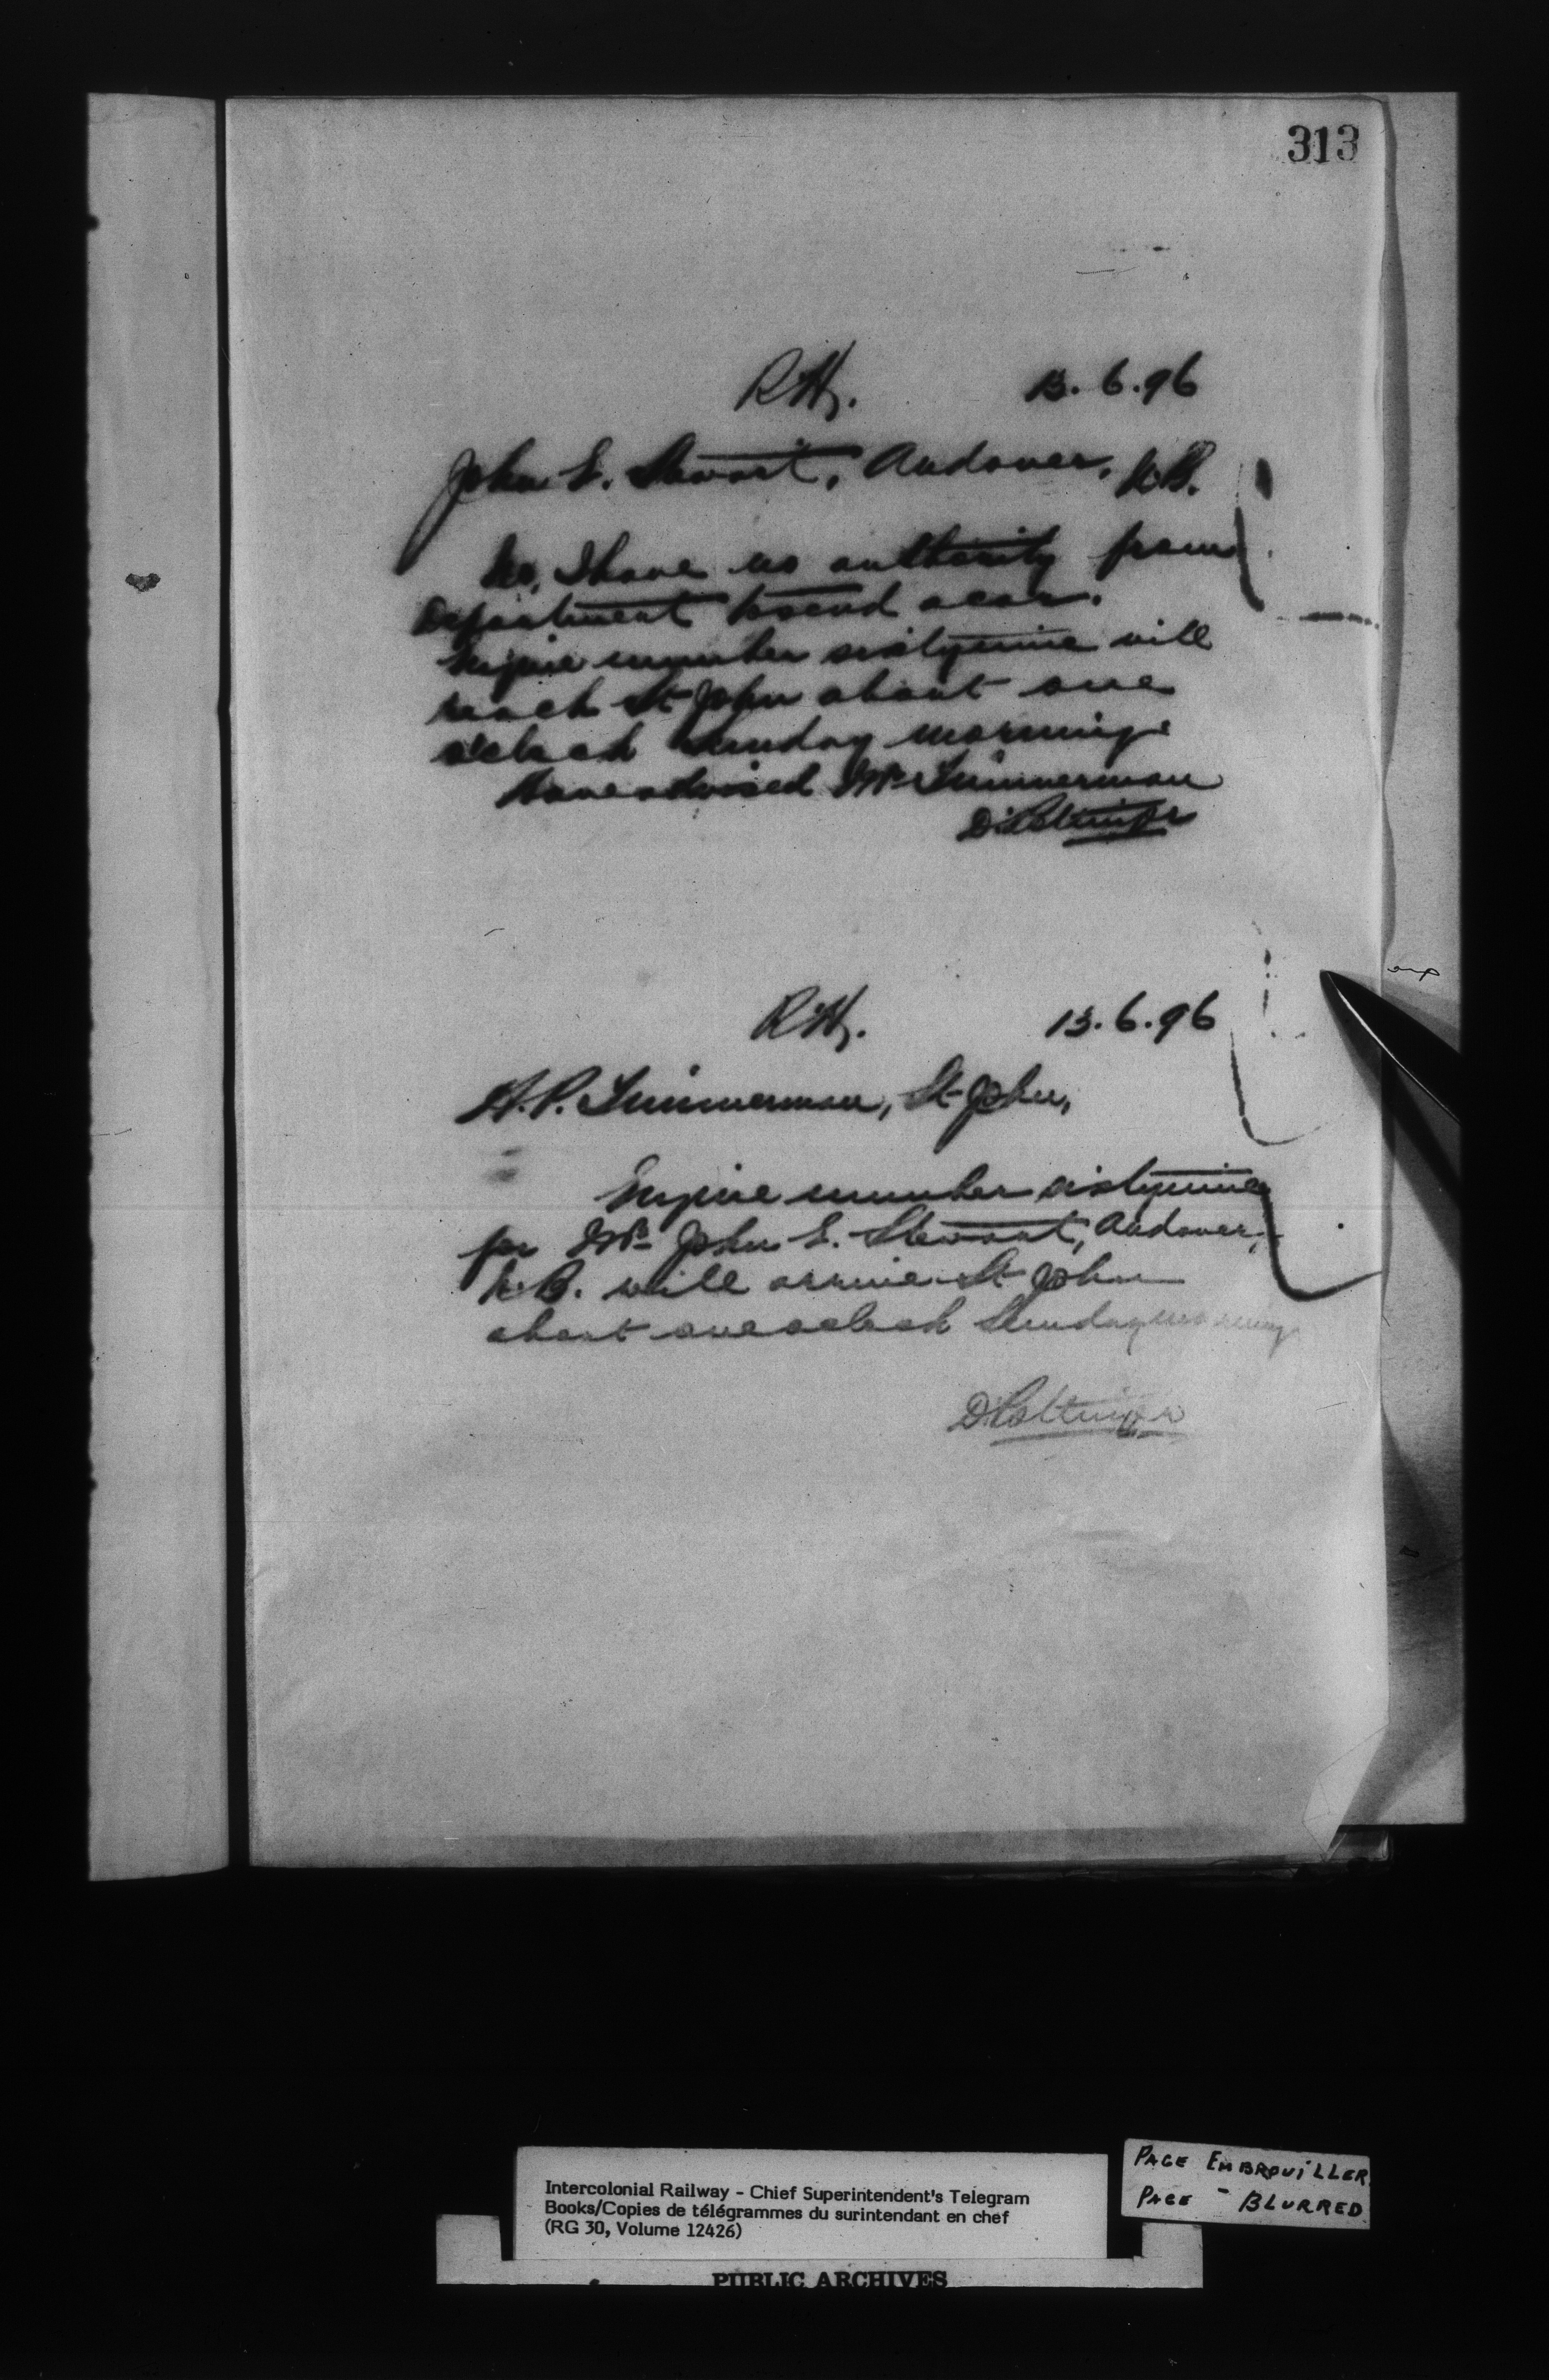 313
RHy. 13.6.96
John E. Stewart, Andover, N.B.
No, I have no authority from
Department to send a car.
Engine number sixtynine will
reach St John about one
oclock Sunday morning.
Have advised Mr Timmerman
D. Pottinger
RHy. 13.6.96
H.P. Timmerman, St John,
Engine number sixtynine
for Mr John E. Stewart, Andover,
N.B. will arrive St John
about one oclock Sunday morning
D. Pottinger
Intercolonial Railway - Chief Superintendent's Telegram
Books/Copies de télégrammes du surintendant en chef
(RG 30, Volume 12426)
PUBLIC ARCHIVES
PAGE EMBROUILLER
PAGE - BLURRED